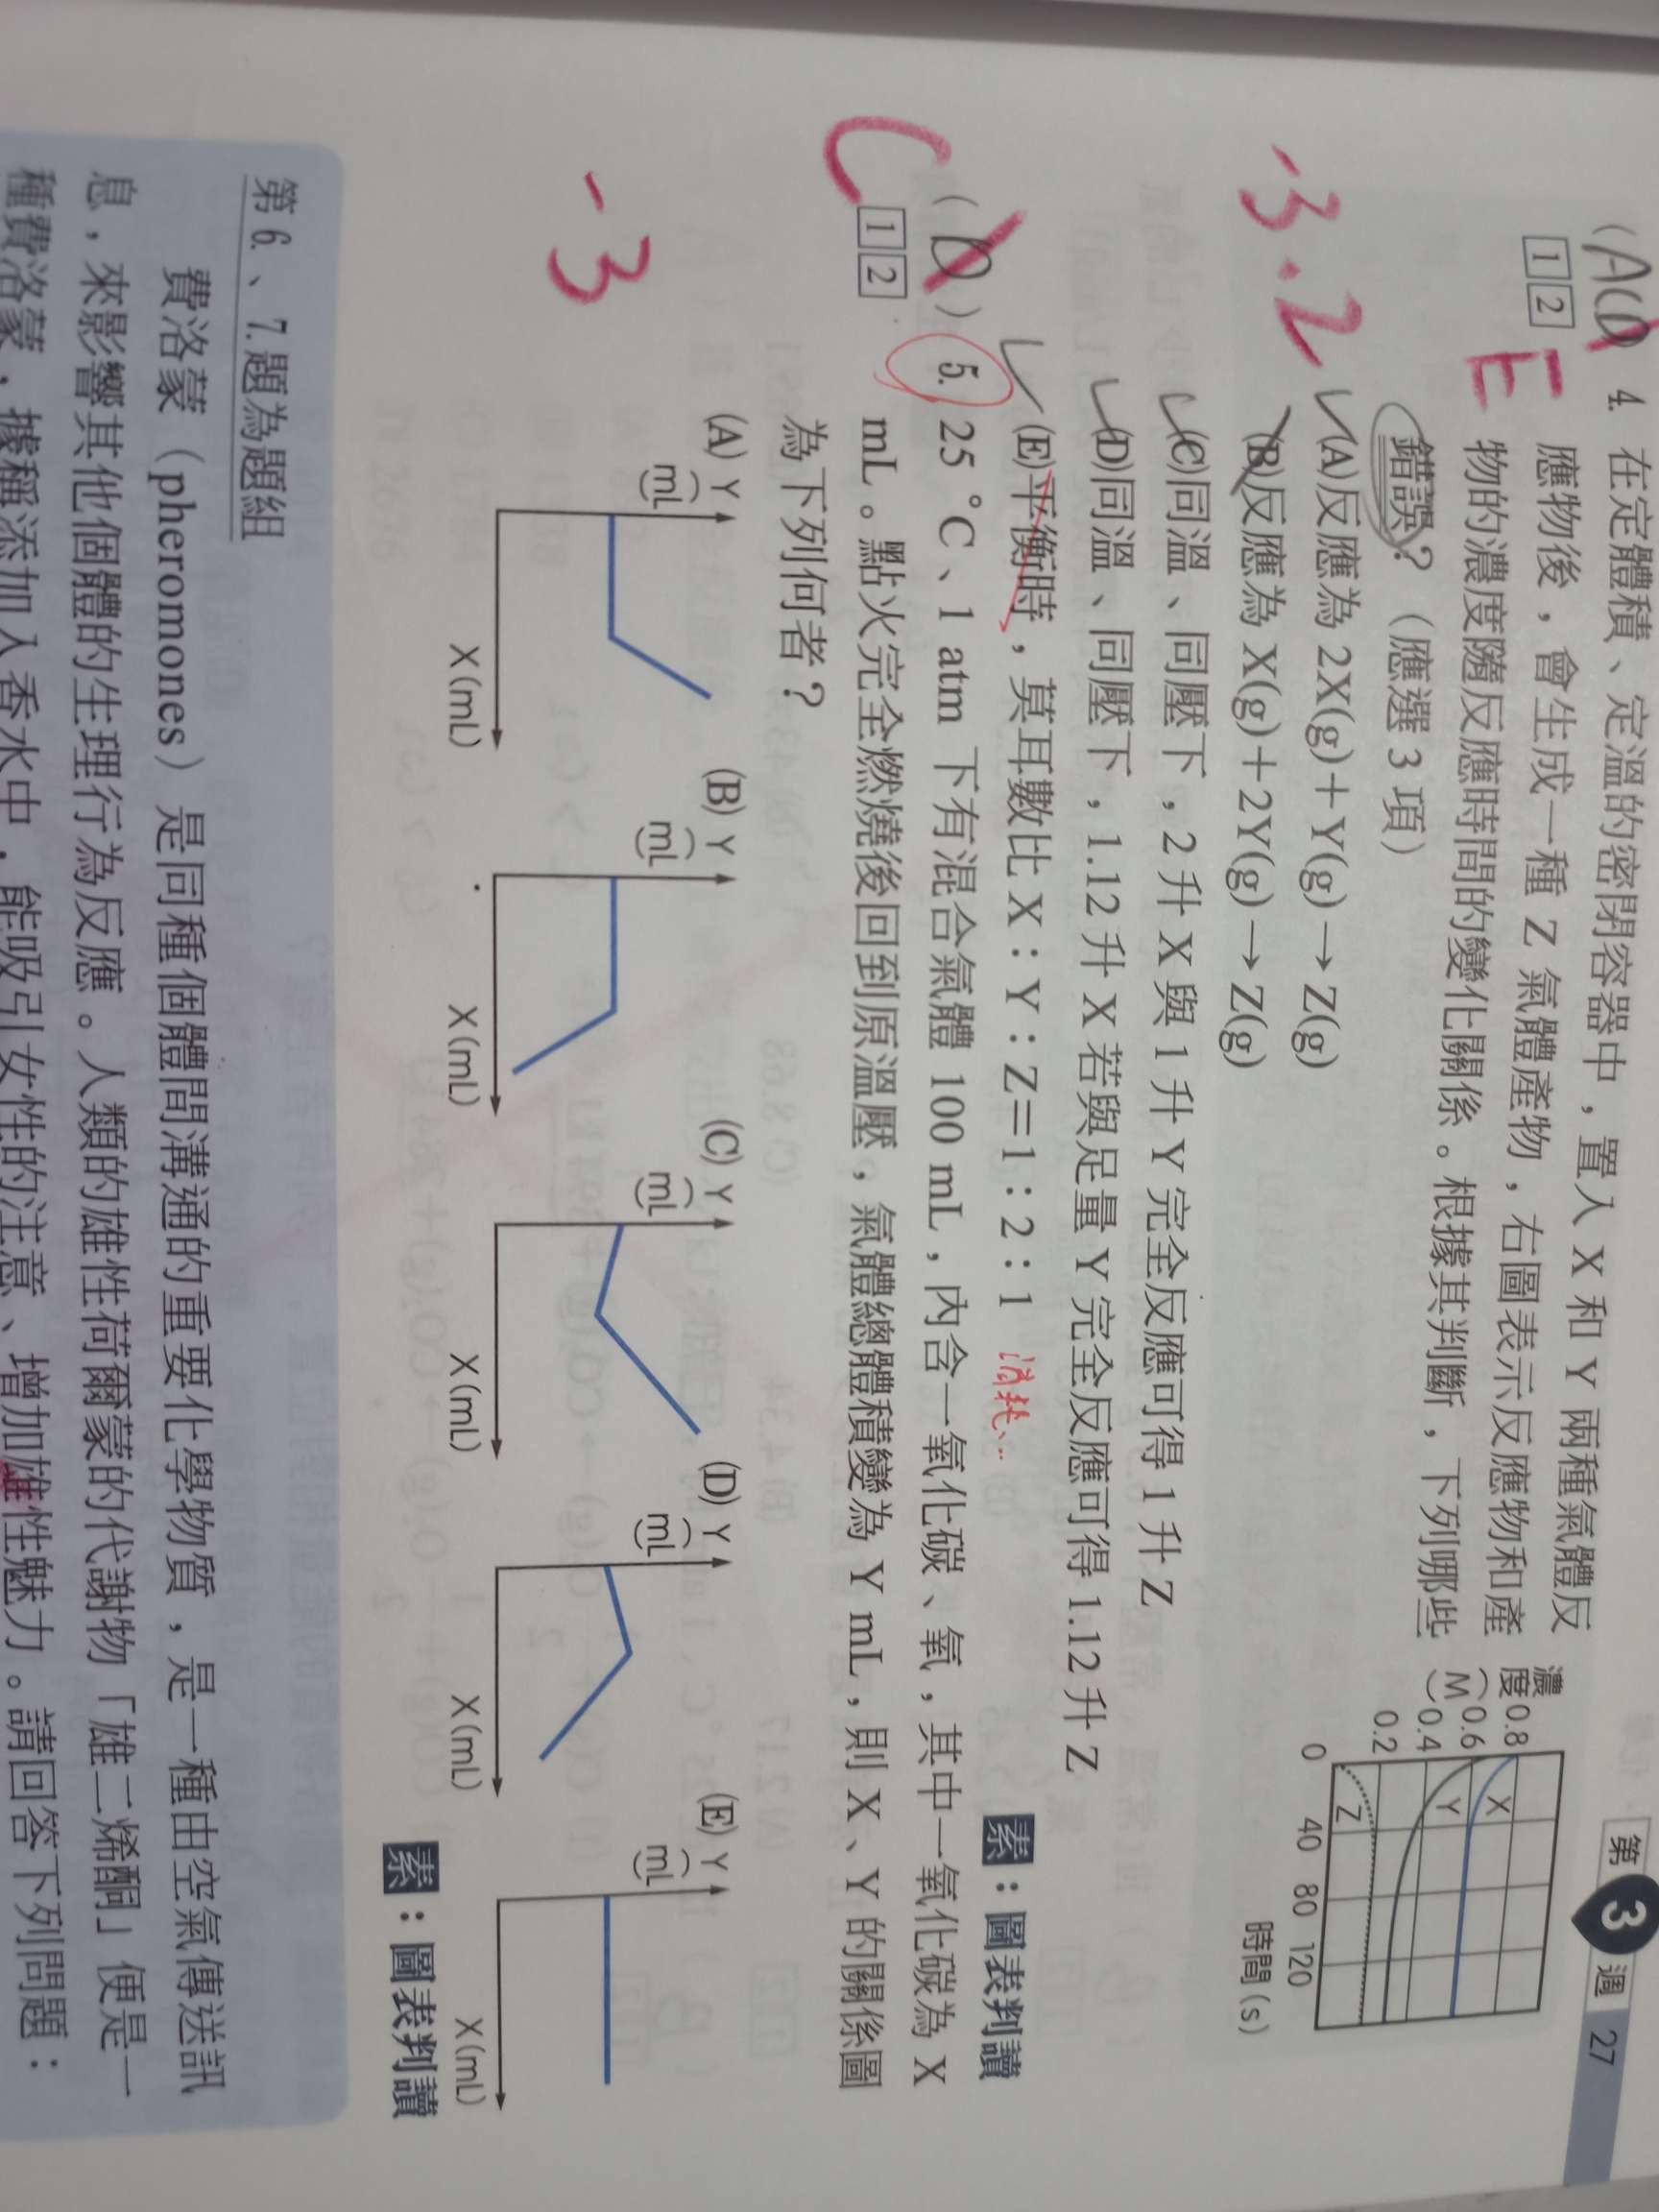 第3週 27
(ACD) 4. 在定體積、定溫的密閉容器中，置入 X 和 Y 兩種氣體反
12 應物後，會生成一種 Z 氣體產物，右圖表示反應物和產
E 物的濃度隨反應時間的變化關係。根據其判斷，下列哪些
錯誤？（應選 3 項）
(A)反應為 2X(g)＋Y(g)→Z(g)
(B)反應為 X(g)＋2Y(g)→Z(g)
-3.2
(C)同溫、同壓下，2 升 X 與 1 升 Y 完全反應可得 1 升 Z
(D)同溫、同壓下，1.12 升 X 若與足量 Y 完全反應可得 1.12 升 Z
(E)平衡時，莫耳數比 X：Y：Z＝1：2：1 消耗
濃度(M)
0.8
0.6
0.4
0.2
0
X
Y
Z
40 80 120
時間(s)
素：圖表判讀
(D) 5. 25 °C、1 atm 下有混合氣體 100 mL，內含一氧化碳、氧，其中一氧化碳為 X
C 12 mL。點火完全燃燒後回到原溫壓，氣體總體積變為 Y mL，則 X、Y 的關係圖
為下列何者？
-3
(A) Y(mL) X(mL)
(B) Y(mL) X(mL)
(C) Y(mL) X(mL)
(D) Y(mL) X(mL)
(E) Y(mL) X(mL)
素：圖表判讀
第 6.、7.題為題組
費洛蒙（pheromones）是同種個體間溝通的重要化學物質，是一種由空氣傳送訊
息，來影響其他個體的生理行為反應。人類的雄性荷爾蒙的代謝物「雄二烯酮」便是一
種費洛蒙，據稱添加入香水中，能吸引女性的注意、增加雄性魅力。請回答下列問題：